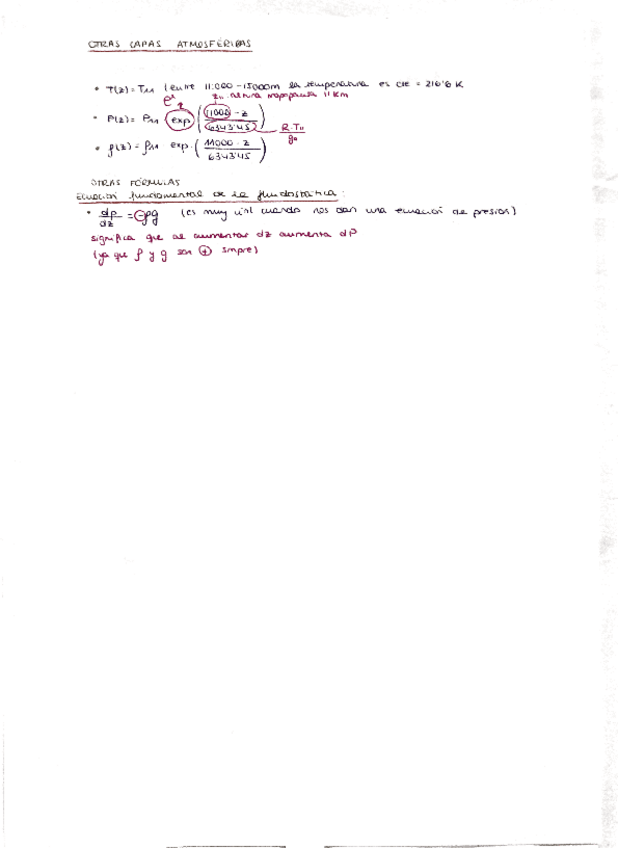 OTRAS CAPAS ATMOSFÉRICAS
• T(z) = T11 (entre 11.000 - 15000m la temperatura es cte = 216'6 K
eˣ z11 altura tropopausa 11 Km
• P(z) = P11 exp (11000 - z / 6343'45) R·T11 / g0
• ρ(z) = ρ11 exp. (11000 - z / 6343'45)
OTRAS FÓRMULAS
Ecuación fundamental de la fluidostática:
• dp/dz = -ρg (es muy útil cuando nos dan una ecuación de presión)
significa que al aumentar dz aumenta dP
(ya que ρ y g son + smpre)